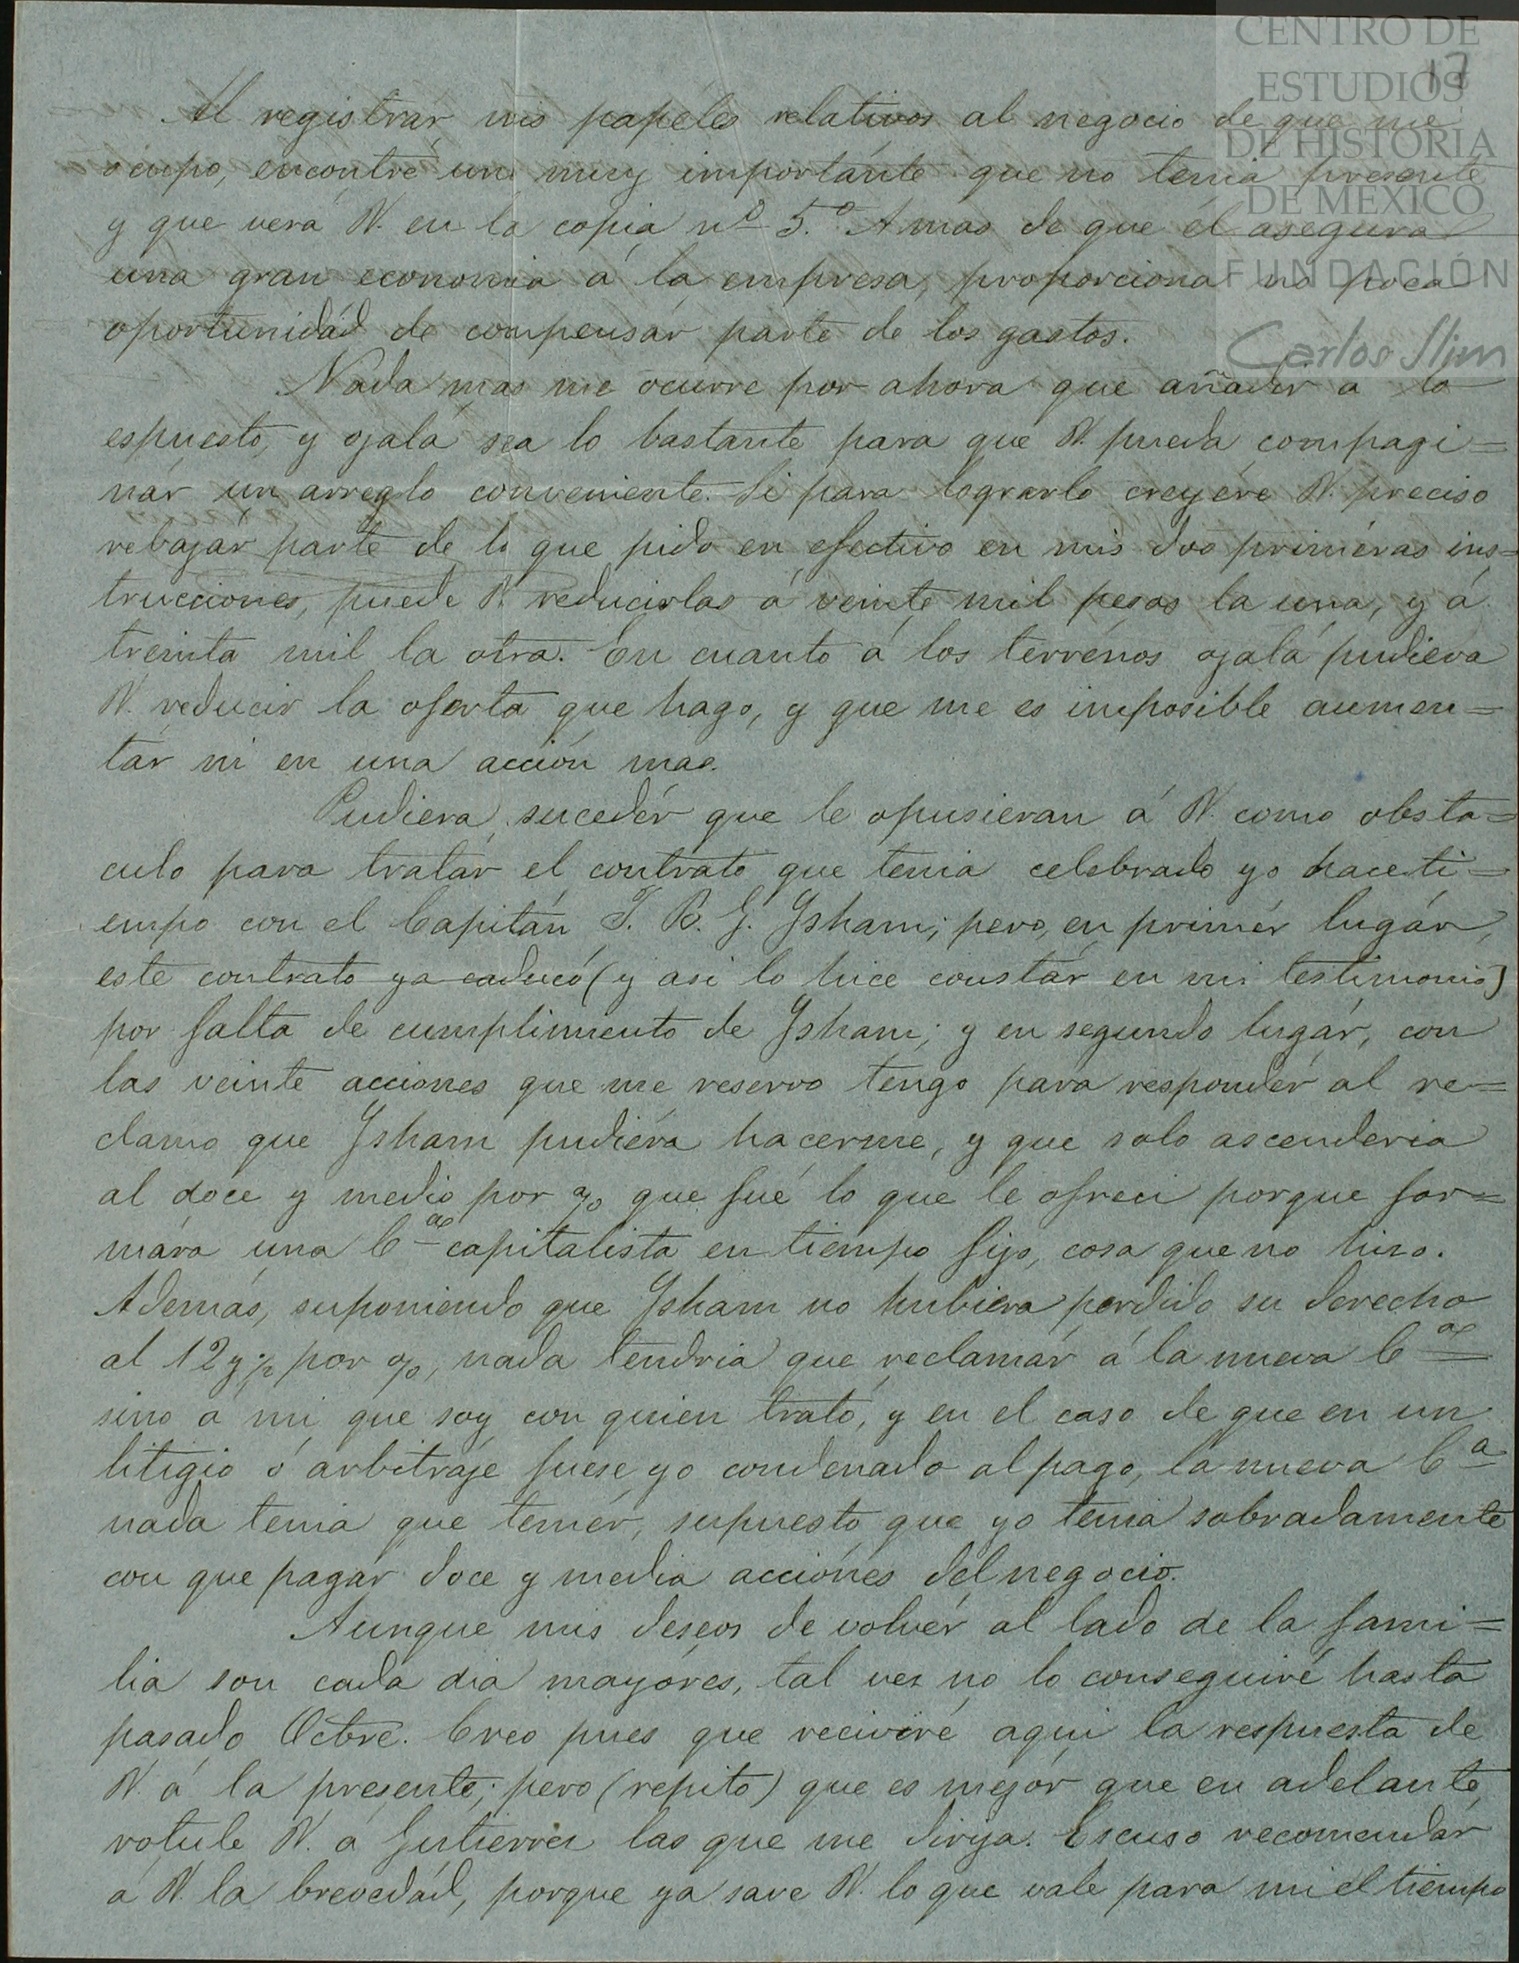 CENTRO DE
ESTUDIOS
DE HISTORIA
DE MÉXICO
FUNDACIÓN
Carlos Slim
17
Al registrár mis papéles relativos al negocio de que me
ocupo, encontré uno muy importánte que no tenia presente
y que verá V. en la copia nº 5.º A mas de que él asegura
una gran economia á la empresa, proporciona no poca
oportunidád de compensár parte de los gastos.
Nada mas me ocurre por ahora que añadir a lo
espuesto, y ojalá sea lo bastante para que V. pueda compagi=
nár un arreglo conveniente. Si para lograrlo creyére V. preciso
rebajár parte de lo que pido en efectivo en mis dos priméras ins=
trucciones, puede V. reducirlas á veinte mil pesos la una, y á
treinta mil la otra. En cuanto á los terrénos ojalá pudiera
V. reducir la oferta que hago, y que me es imposible aumen=
tár ni en una acción mas.
Pudiera sucedér que le opusieran á V. como obsta=
culo para tratár el contrato que tenia celebrado yo hace ti=
empo con el Capitán T. B. G. Ysham; pero, en primér lugár,
este contrato ya caducó (y asi lo hice constár en mi testimonio)
por falta de cumplimiento de Ysham; y en segundo lugár, con
las veinte acciones que me reservo tengo para respondér al re=
clamo que Ysham pudiéra hacerme, y que solo ascenderia
al doce y medio por % que fué lo que le ofreci porque for=
mára una Cª capitalista en tiempo fijo, cosa que no hizo.
Además, suponiendo que Ysham no hubiera perdido su derecho
al 12 y ½ por %, nada tendria que reclamár á la nueva Cª
sino a mi, que soy con quien trató, y en el caso de que en un
litigio ó arbitráje fuese yo condenado al pago, la nueva Cª
nada tenia que temér, supuesto que yo tenia sobradamente
con que pagár doce y media acciónes del negocio.
Aunque mis deseos de volvér al lado de la fami=
lia son cada dia mayóres, tal vez no lo conseguiré hasta
pasado Octbre. Creo pues que reciviré aqui la respuesta de
V. á la presente; pero (repito) que es mejór que en adelante,
rotule V. a Gutierrez las que me dirija. Escuso recomendár
a V. la brevedád, porque ya save V. lo que vale para mi el tiempo